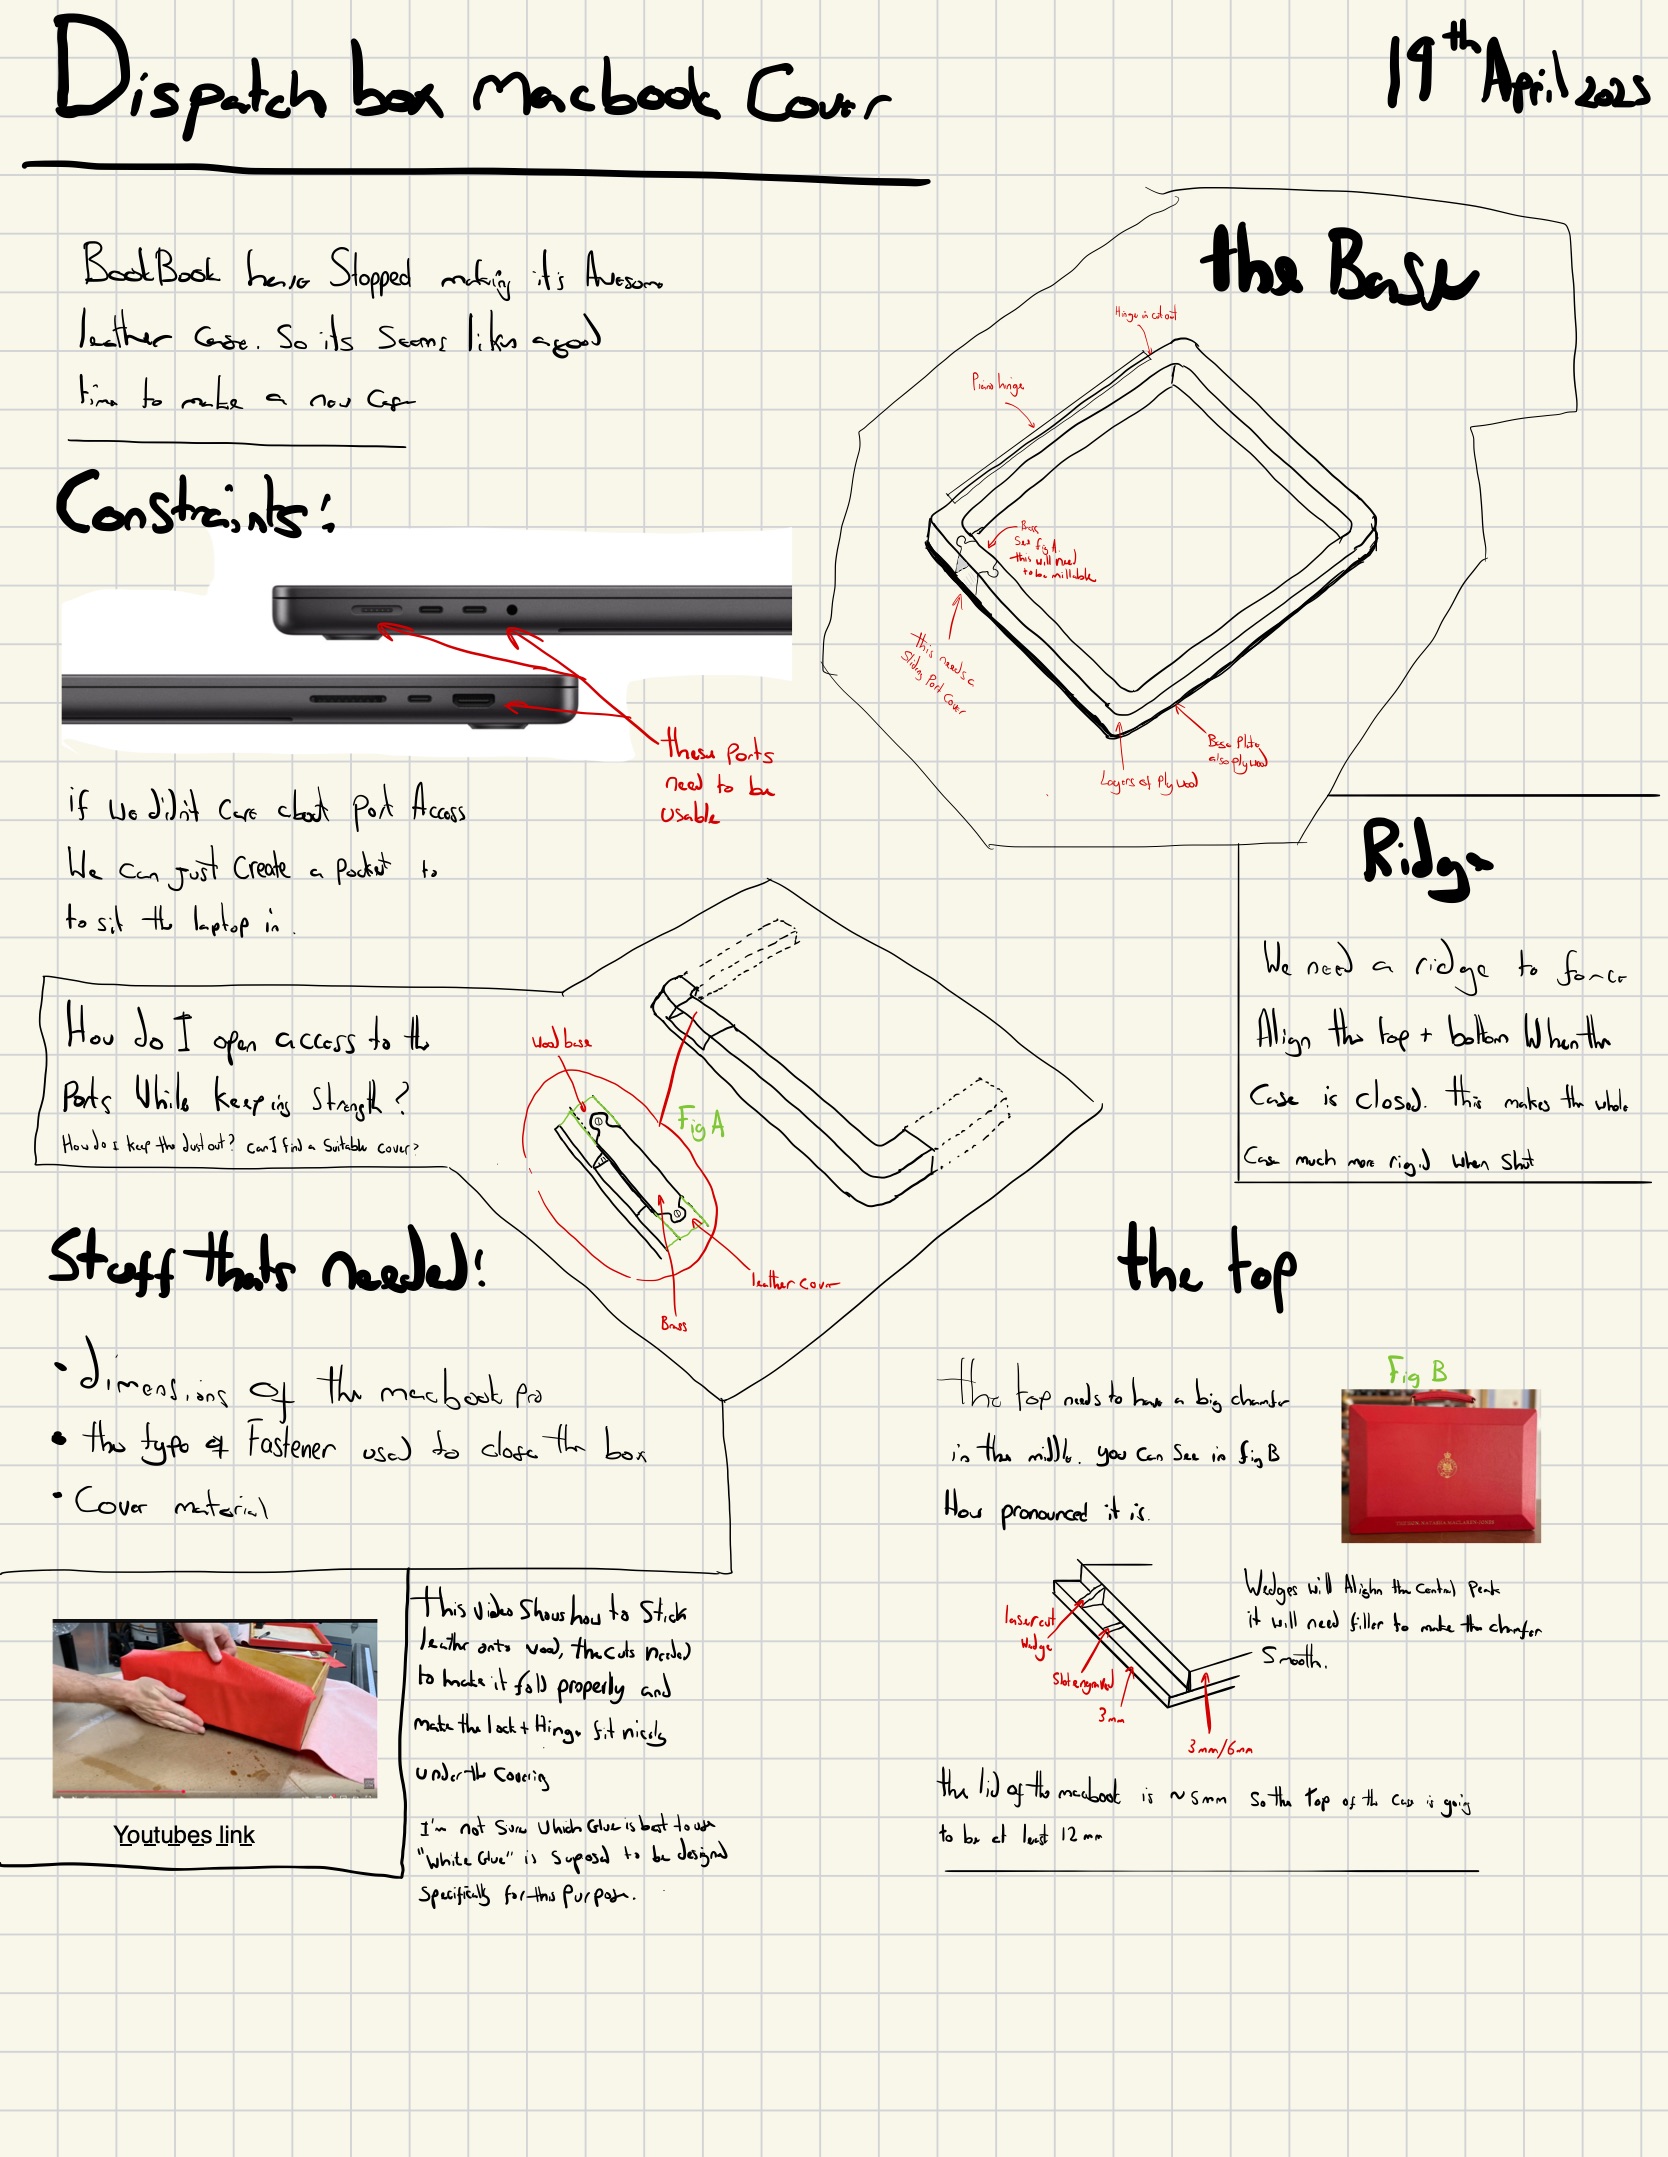 Dispatch box Macbook Cover
19th April 2025
BookBook have Stopped making it's Awesome
leather case. So its Seems like a good
time to make a new case
Constraints!
these ports
need to be
usable
if we didn't care about port Access
We can just Create a pocket to
to sit the laptop in.
How do I open access to the
Ports While keeping Strength?
How do I keep the dust out? can I find a Suitable cover?
wood base
Fig A
leather cover
Brass
the Base
Hinge in cut out
Piano hinge
Brass
See fig A.
this will need
to be millable
this needs a
Sliding Port Cover
Layers of Plywood
Base Plate
also plywood
Ridge
We need a ridge to force
Align the top + bottom When the
Case is closed. this makes the whole
Case much more rigid when Shut
Stuff thats needed!
• dimensions of the macbook pro
• the type of Fastener used to close the box
• Cover material
Youtubes link
This video Shows how to Stick
leather onto wood, the cuts needed
to make it fold properly and
make the lock + Hinge fit nicely
under the Covering
I'm not Sure Which Glue is best to use
"White Glue" is Suposed to be designed
Specifically for this Purpose.
the top
the top needs to have a big chamfer
in the middle. you can See in fig B
How pronounced it is.
Fig B
lasercut
Wedge
Slot engraved
3mm
3mm/6mm
Wedges will Alighn the Central Peak
it will need filler to make the chamfer
Smooth.
the lid of the macbook is ~5mm So the top of the case is going
to be at least 12mm